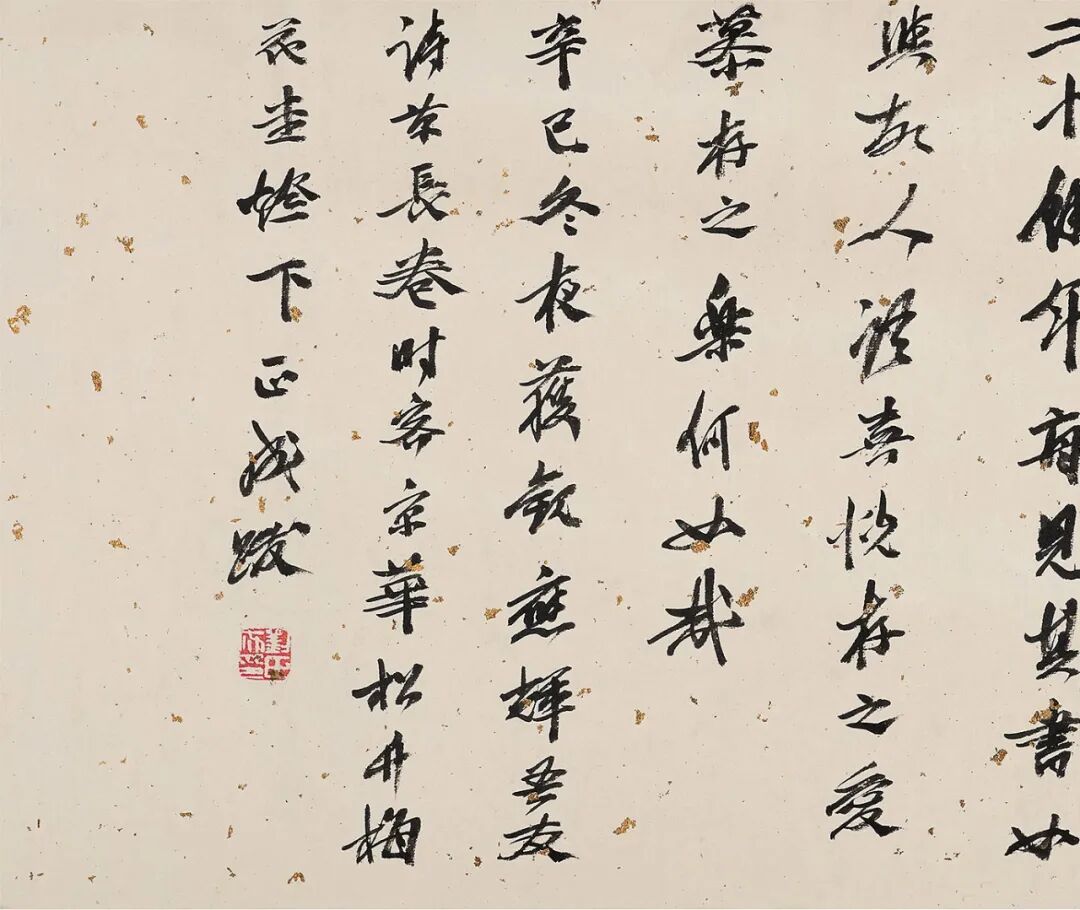 二十餘年每見其書如
與故人語喜悦存之愛
慕存之樂何如哉
辛巳冬夜獲觀應輝吾友
詩草長卷时客京華松竹梅
花堂燈下正成跋